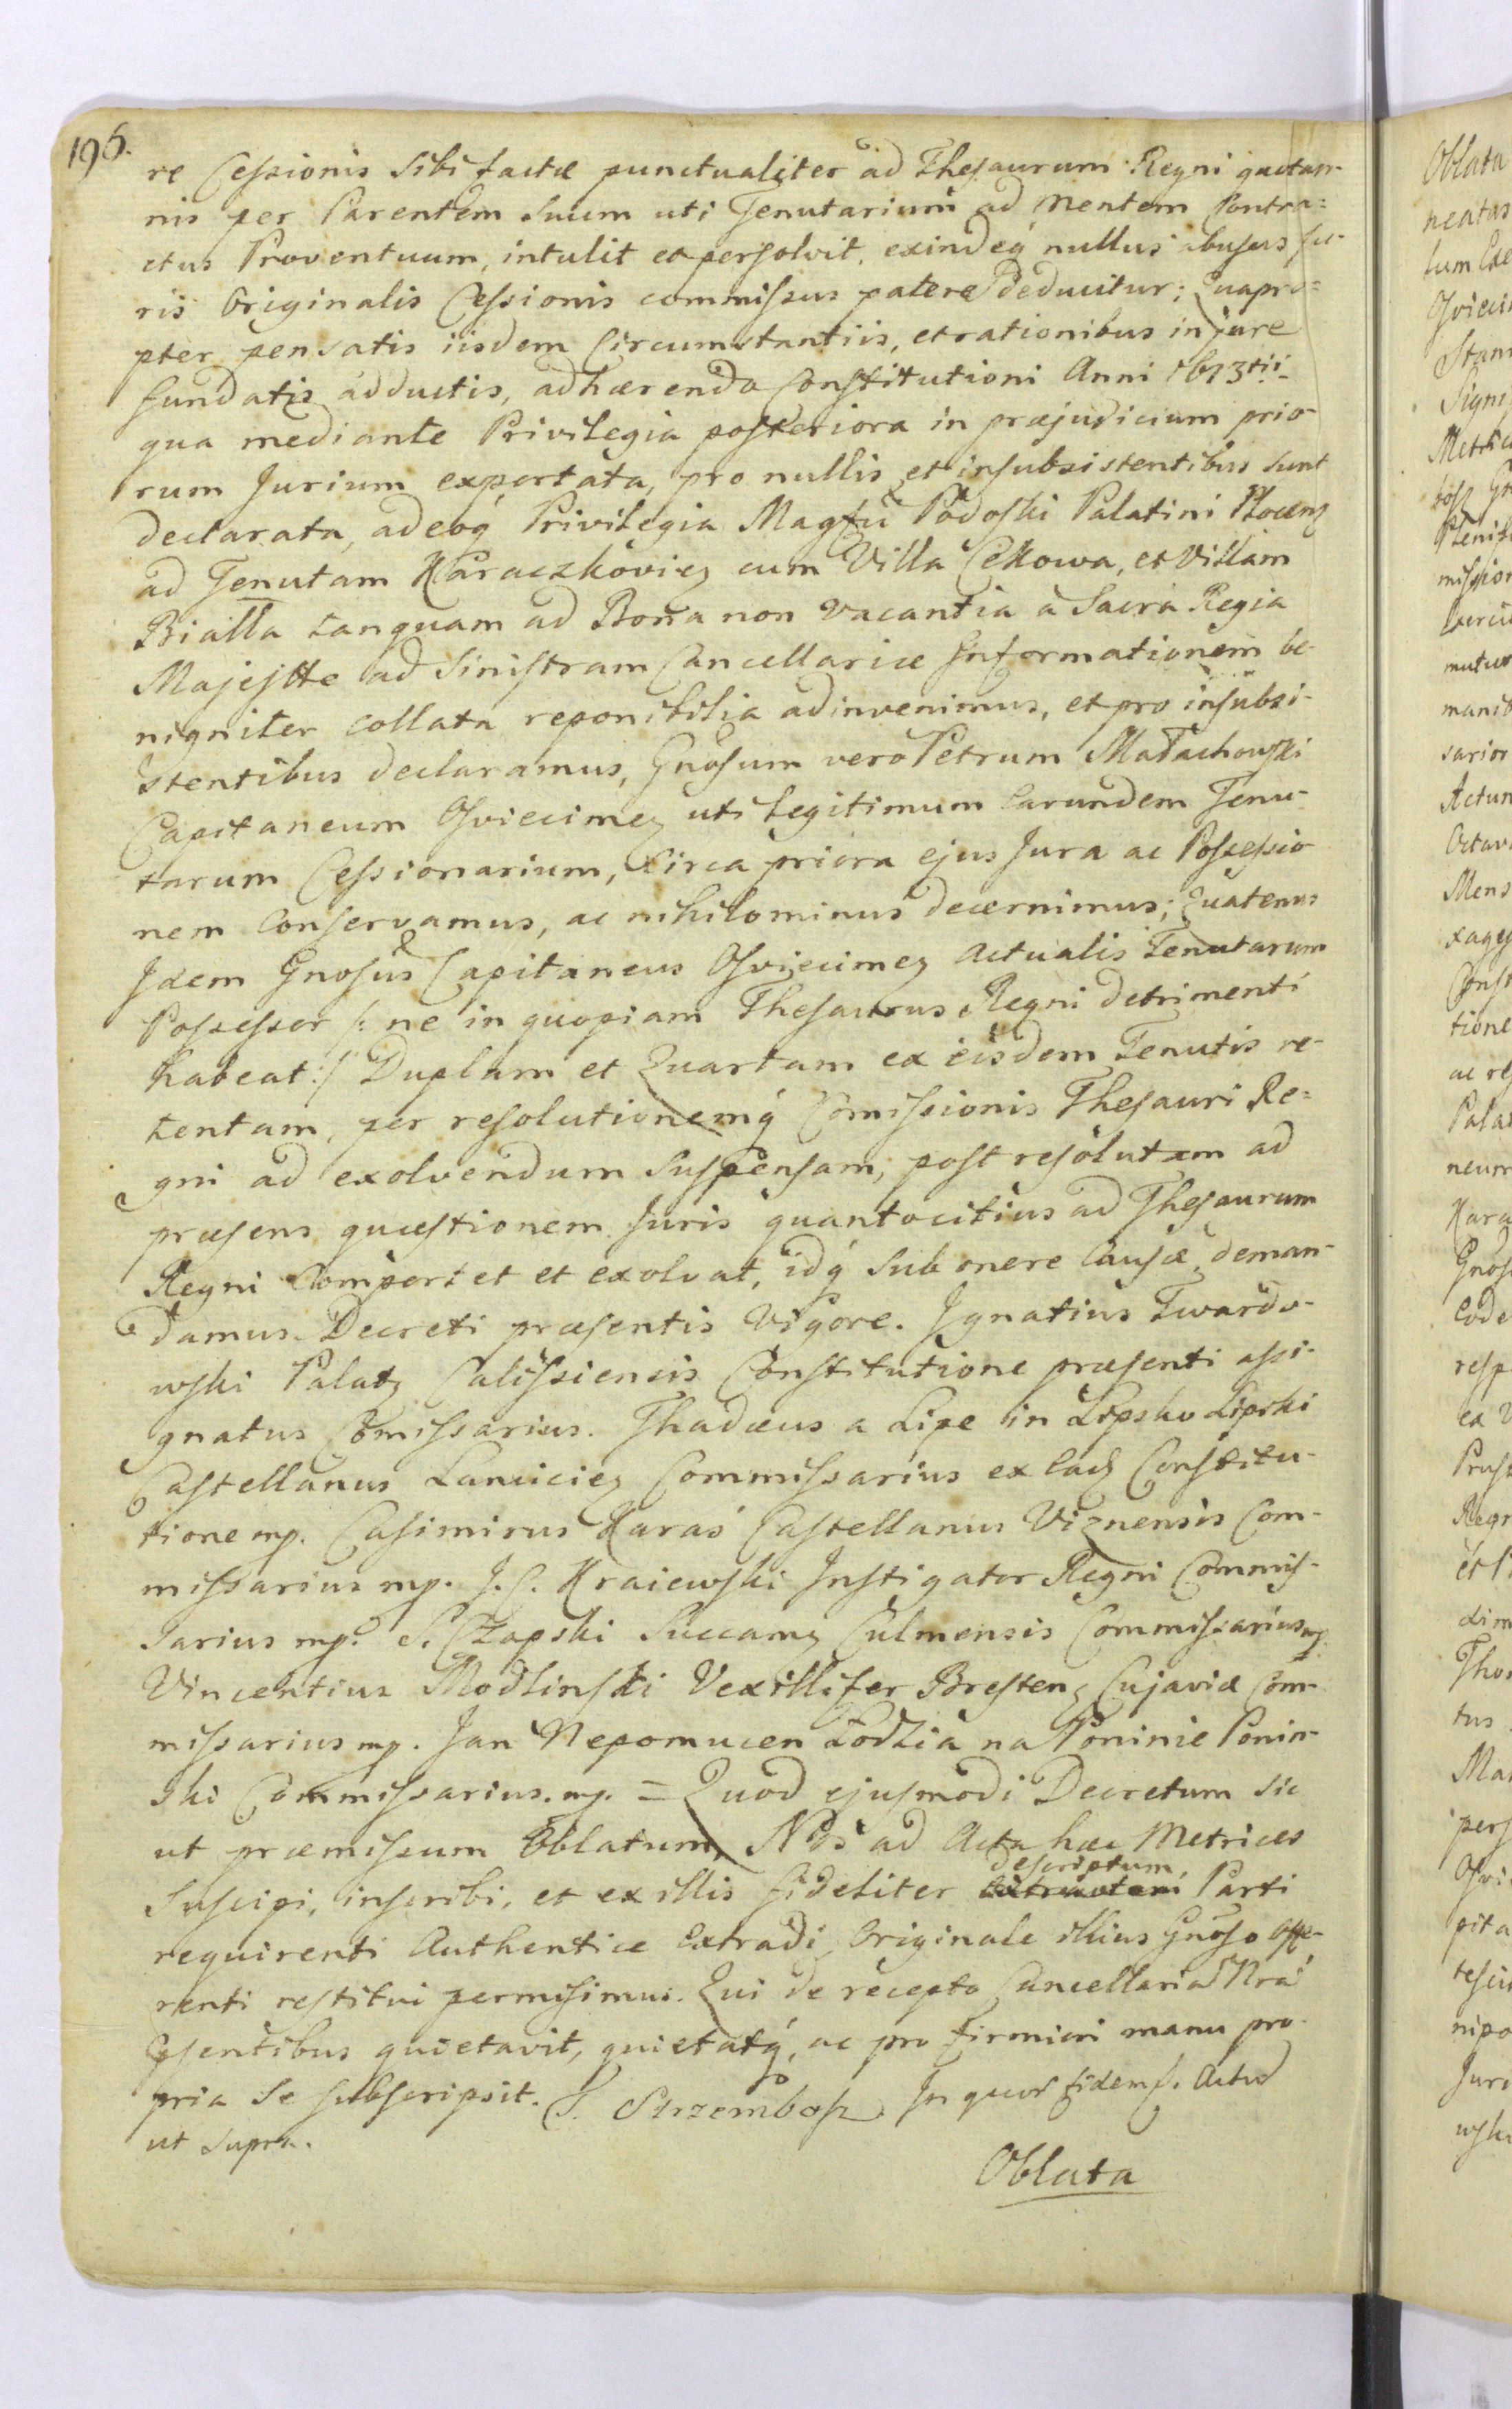 196.
re Cessionis Sibi factæ punctualiter ad Thesaurum Regni quotan-
nis per Parentem Suum uti Tenutarium ad mentem Contra=
ctus Proventuum, intulit et persolvit, exindeq́ nullus abusus Ju-
ris Originalis Cessionis commissus patere deducitur; Quapro=
pter pensatis iisdem Circumstantiis, et rationibus in jure
fundatis adductis, adhærendo Constitutioni Anni 1673tii
qua mediante Privilegia posteriora in præjudicium prio-
rum Jurium exportata, pro nullis et insubsistentibus sunt
declarata, adeoq́ Privilegia Magfci Podoski Palatini Plocens
ad Tenutam Karaczkowicz cum Villa Cekowa, et Villam
Bialla tanquam ad Bona non vacantia a Sacra Regia
Majestte ad Sinistram Cancellariæ Informationem be-
nigniter collata reponibilia adinvenimus, et pro insubsi-
stentibus declaramus, Gnosum vero Petrum Małachowski
Capitaneum Osviecimez uti Legitimum Earundem Tenu-
tarum Cessionarium, Circa priora ejus Jura ac Possessio
nem Conservamus, ac nihilominus decernimus; Quatenus
Idem Gnosus Capitaneus Osviecimez Actualis Tenutarum
Possessor /: ne in quopiam Thesaurus Regni detrimenti
habeat :/ Duplam et Quartam ex eisdem Tenutis re-
tentam, per resolutionemq́ Comissionis Thesauri Re=
gni ad exolvendum Suspensam, post resolutam ad
præsens quæstionem Juris quantocitius ad Thesaurum
Regni Comportet et exolvat, idq́ Sub onere Causæ, deman-
damus Decreti præsentis Vigore. Ignatius Twardo-
wski Palatz Calissiensis Constitutione præsenti assi-
gnatus Comissarius. Thadæus a Lipe in Lipsko Lipski
Castellanus Lanciciez Commissarius ex Eadz Constitu-
tione mp. Casimirus Karaś Castellanus Viznensis Com-
missarius mp. J. C. Kraiewski Instigator Regni Commis-
sarius mp. S. Czapski Succamz Culmensis Commissarius mp.
Vincentius Modlinski Vexillifer Brestenz Cujaviæ Com-
missarius mp. Jan Nepomucen Łodzia na Poninie Ponin-
ski Commissarius. mp. = Quod ejusmodi Decretum sic
ut præmissum Oblatum, Nos ad Acta hæc Metrices
Suscipi, inscribi, et ex illis fideliter descriptum, Parti
requirenti Authentice Extradi, Originale illius Gnoso Offe-
renti restitui permisimus. Qui de recepto Cancellariã Nrã
psentibus quietavit, quietatq́, ac pro firmiori manu pro-
pria Se subscripsit. S. Strzembosz In quor fidem p. Actũ
ut supra.
Oblata